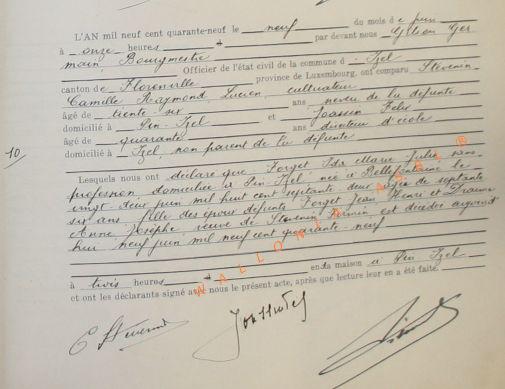 L'AN mil neuf cent quarante-neuf le neuf du mois de juin
à onze heures par devant nous Gilson Ger
main, Bourgmestre
Officier de l'état civil de la commune d Izel
canton de Florenville province de Luxembourg, ont comparu Stévenin
Camille Raymond Lucien, cultivateur
âgé de trente six ans neveu de la défunte
domicilié à Pin-Izel et Joassin Félix
âgé de quarante ans directeur d'école
domicilié à Izel, non parent de la défunte
10
Lesquels nous ont déclaré que Forget Ida Marie Julie sans
profession domiciliée à Pin-Izel née à Bellefontaine le
vingt deux juin mil huit cent septante deux âgée de septante
six ans fille des époux défunts Forget Jean Henri et
Anne Josèphe, veuve de Stévenin Firmin est décédée aujourd
hui neuf juin mil neuf cent quarante-neuf
à trois heures en sa maison à Pin-Izel
et ont les déclarants signé avec nous le présent acte, après que lecture leur en a été faite.
WALLONIA ASBL ®
C Stévenin